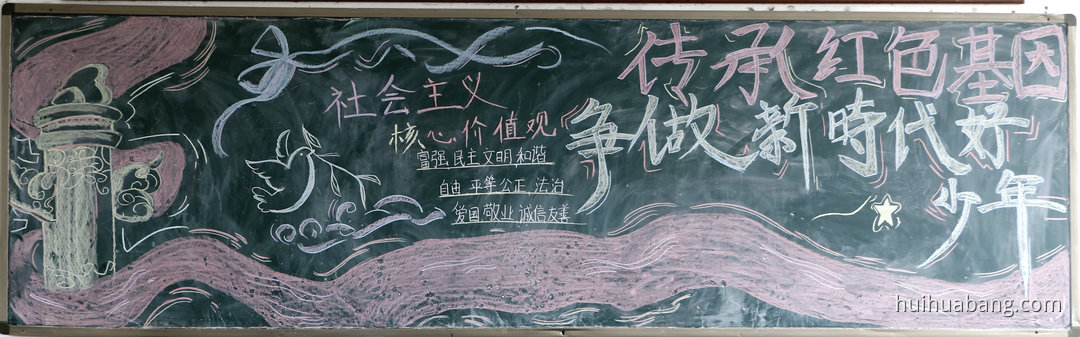 社会主义
核心价值观
富强 民主 文明 和谐
自由 平等 公正 法治
爱国 敬业 诚信 友善
传承红色基因
争做新時代好
少年
huihuabang.com